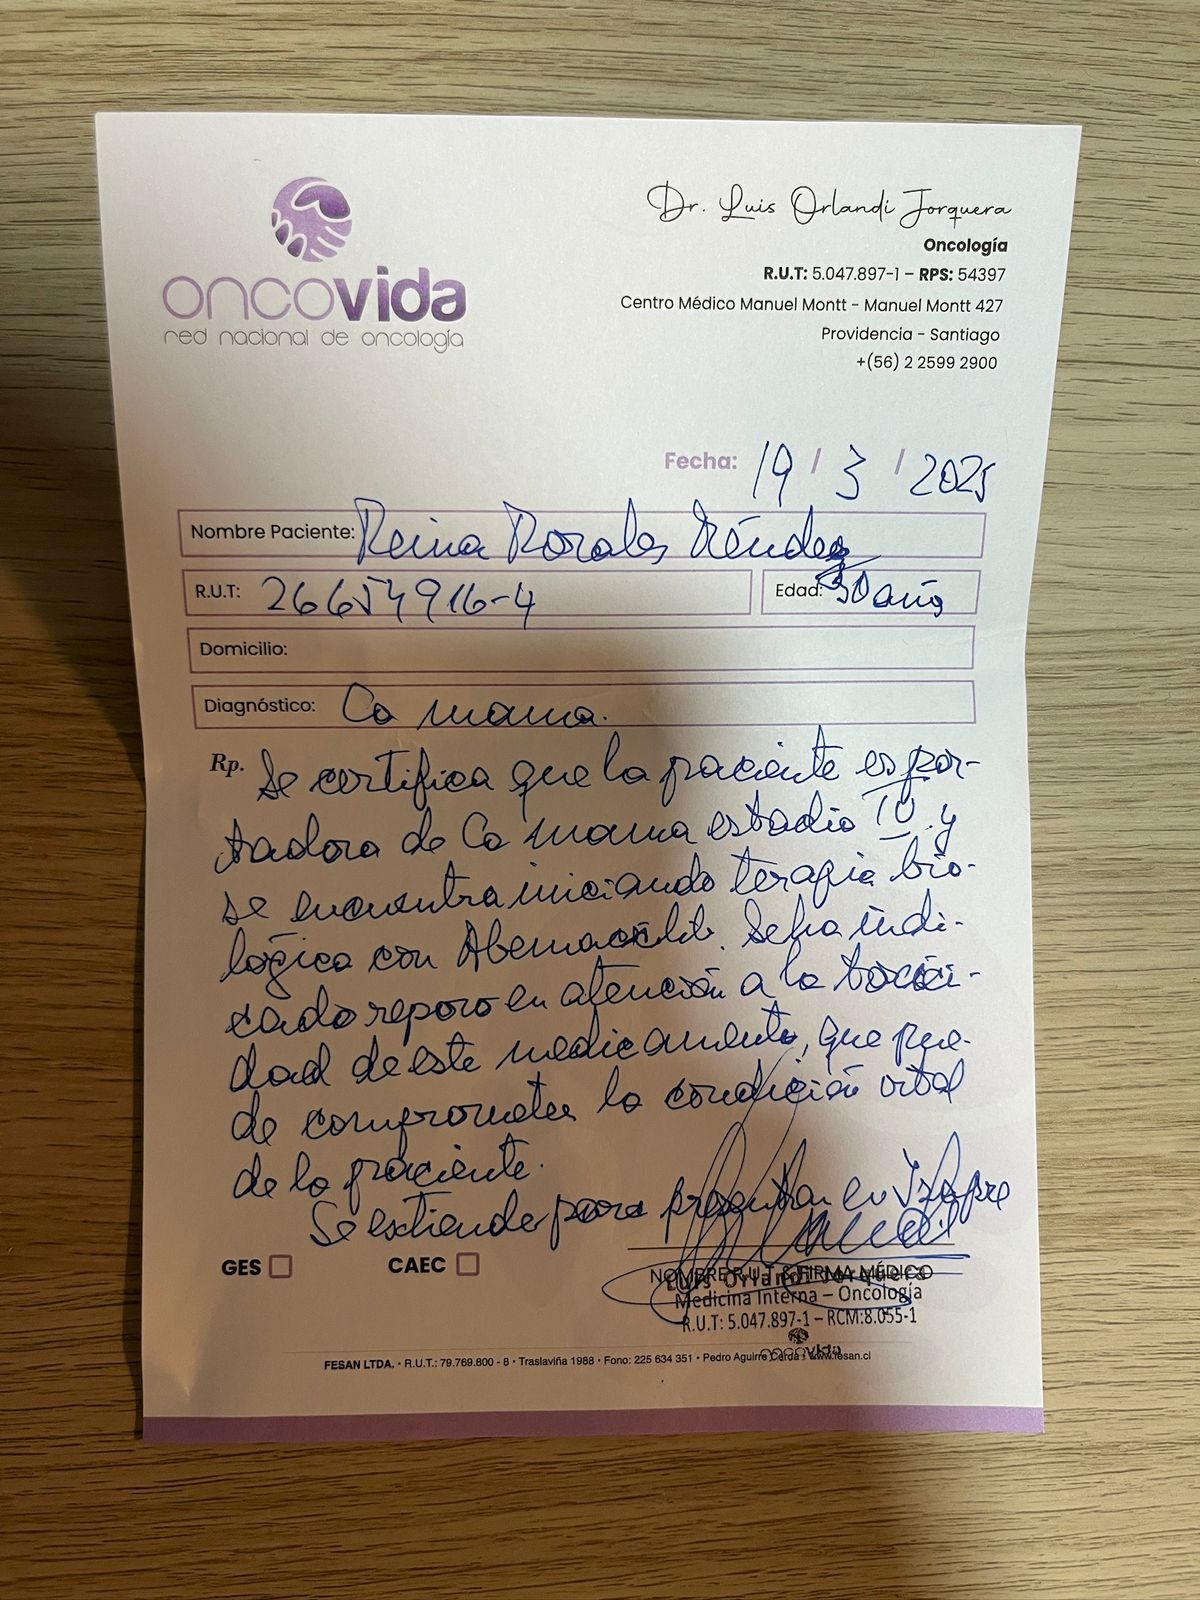 oncovida
red nacional de oncología
Dr. Luis Orlandi Jorquera
Oncología
R.U.T: 5.047.897-1 – RPS: 54397
Centro Médico Manuel Montt - Manuel Montt 427
Providencia - Santiago
+(56) 2 2599 2900
Fecha: 19 / 3 / 2025
Nombre Paciente: Reina Rosales Méndez
R.U.T: 26654916-4 Edad: 30 años
Domicilio:
Diagnóstico: Ca mama.
Rp. Se certifica que la paciente es por-
tadora de Ca mama estadio IV y
se encuentra iniciando terapia bio-
lógica con Abemaciclib. Se ha indi-
cado reposo en atención a la toxici-
dad de este medicamento, que pue-
de comprometer la condición vital
de la paciente.
Se extiende para presentar en Isapre
GES CAEC
NOMBRE R.U.T & FIRMA MÉDICO
Luis Orlandi Jorquera
Medicina Interna – Oncología
R.U.T: 5.047.897-1 – RCM:8.055-1
oncovida
FESAN LTDA. • R.U.T.: 79.769.800 - 8 • Traslaviña 1988 • Fono: 225 634 351 • Pedro Aguirre Cerda • www.fesan.cl